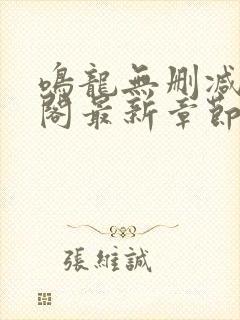 鳴龍無刪減
閣最新章節
張維誠